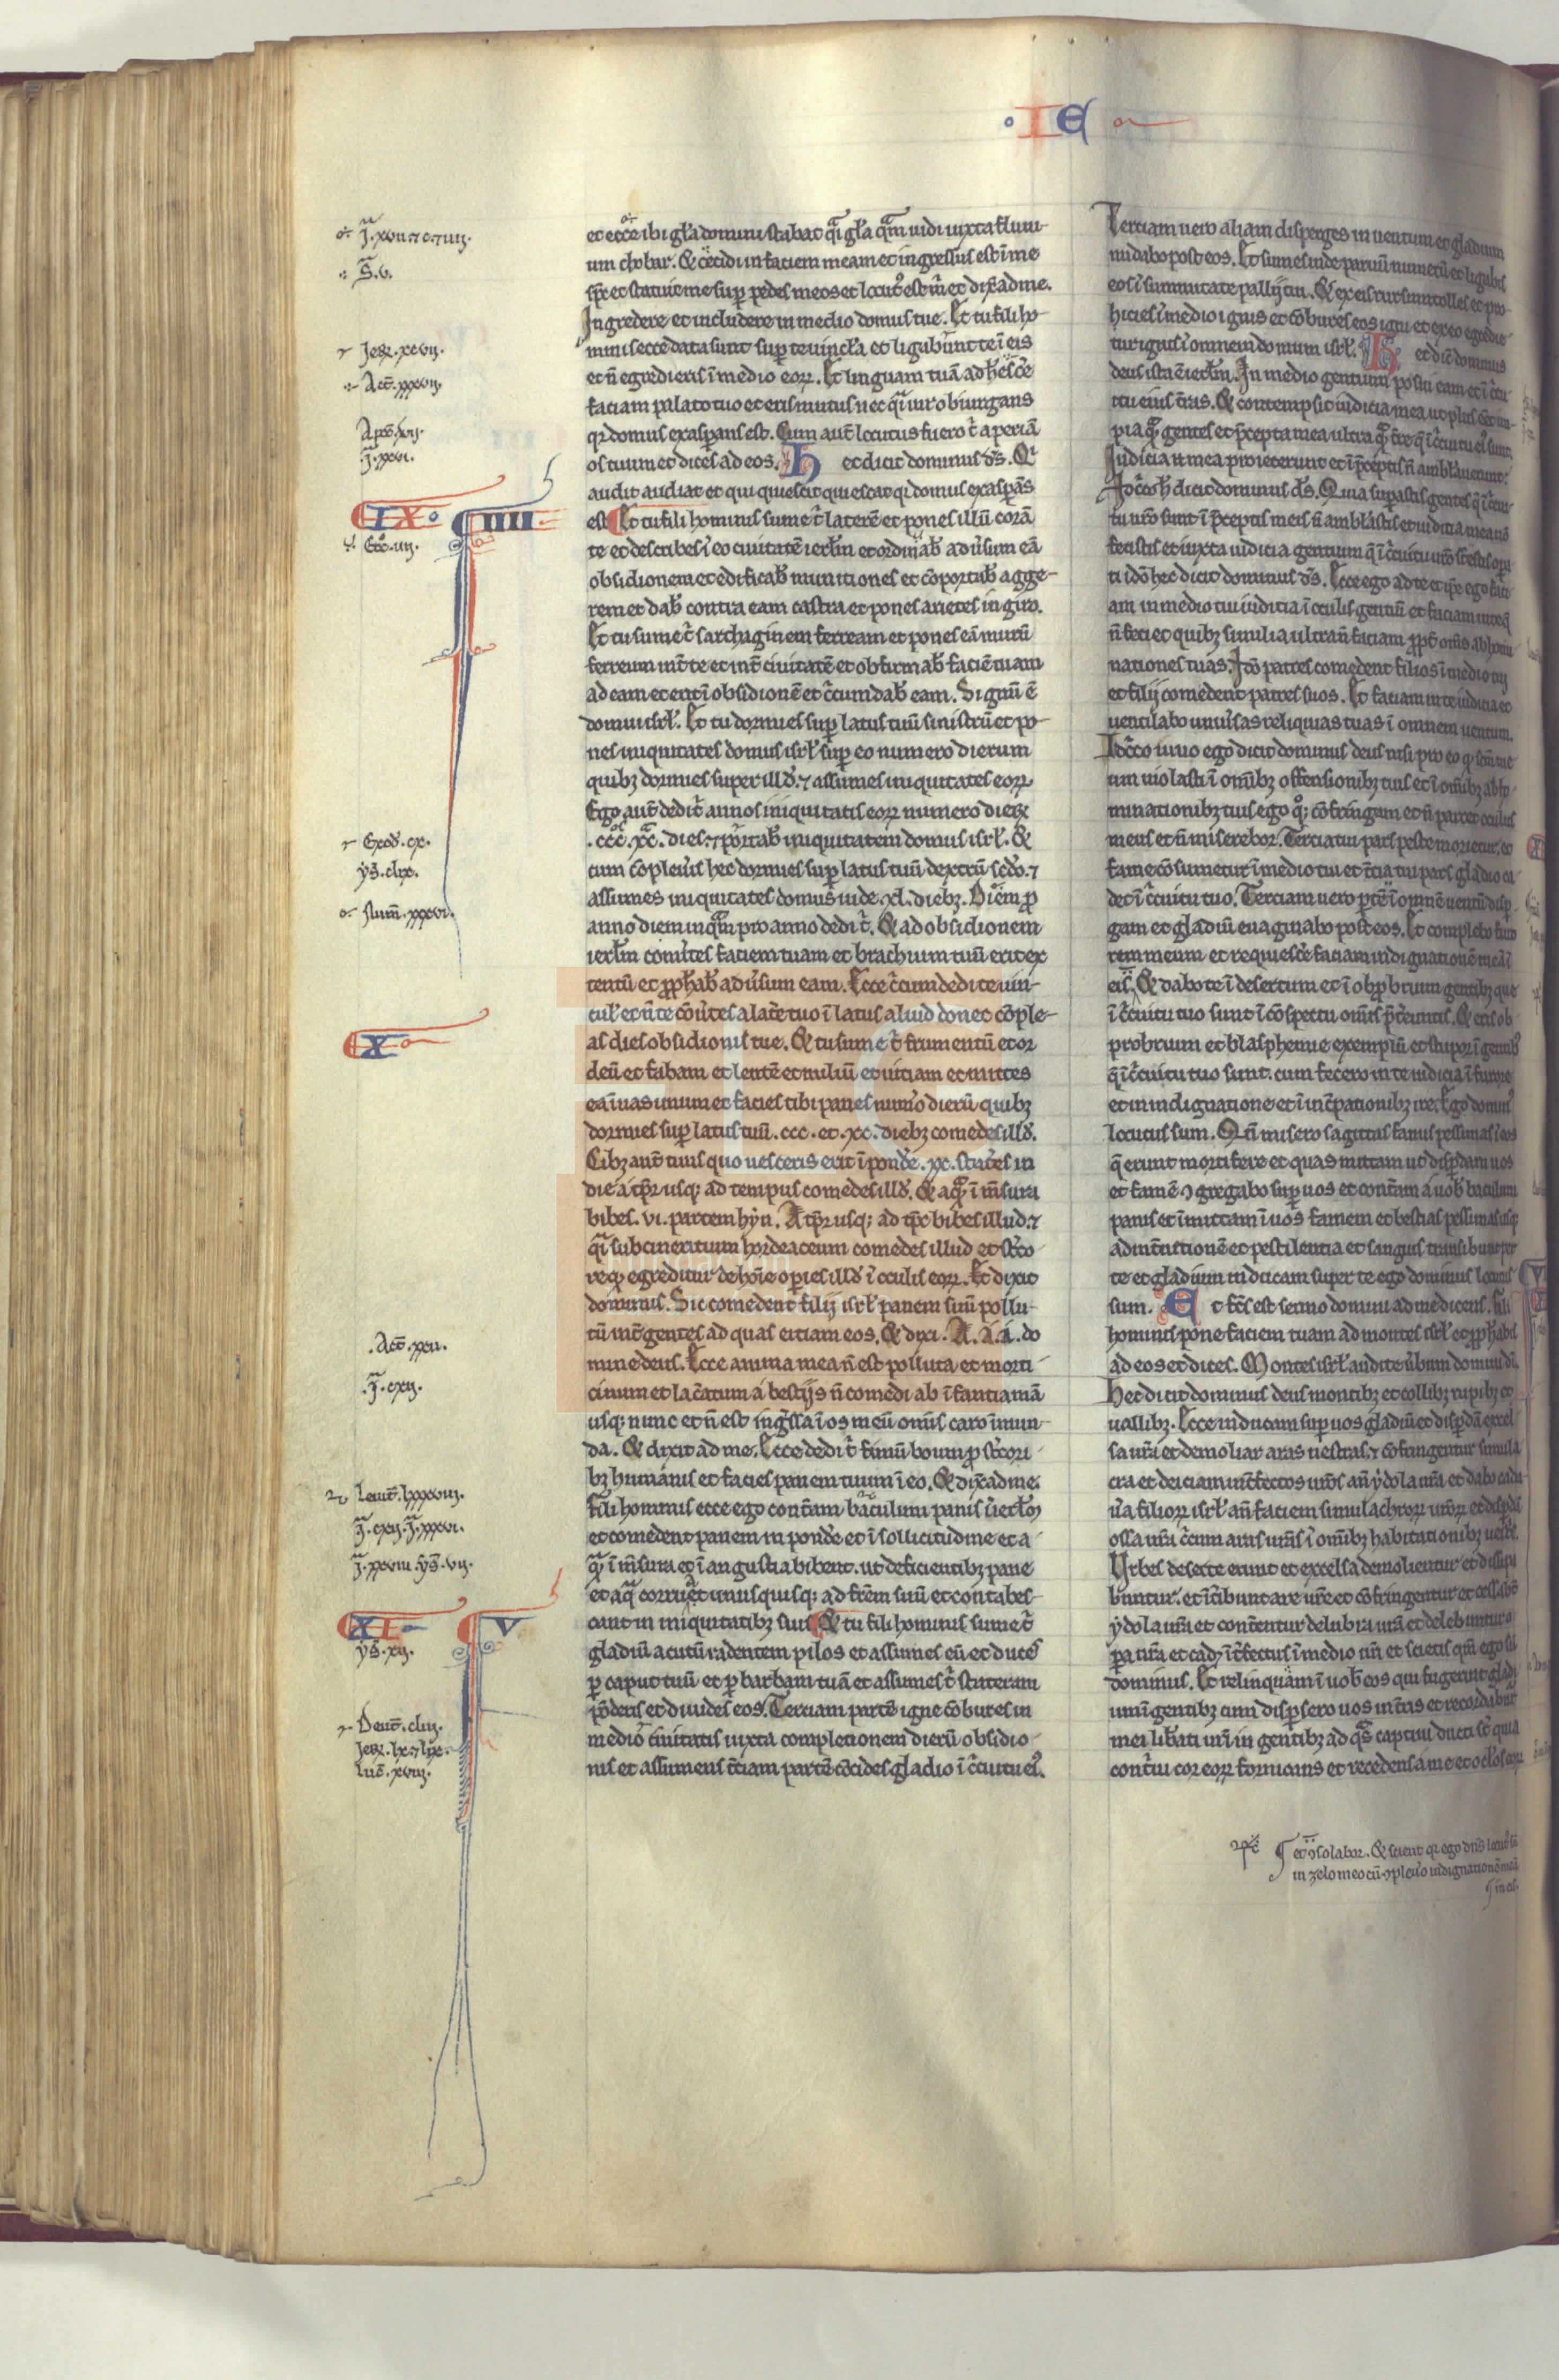 · I E
et ecce ibi gła domini stabat q̈i gła quā uidi iuxta fluui-
um chobar. & cecidi in faciem meam et ingressus est ī me
sp̄c et statuit me sup̱ pedes meos et locutꝰ est m̄ et dix̄ ad me.
Ingredere et includere in medio domus tue. Et tu fili ho-
minis ecce data sunt sup̱ te uincła et ligabūnt te ī eis
et n̄ egredieris ī medio eoꝝ. Et linguam tuā adh̄esc̄e
faciam palato tuo et eris mutus nec q̈i uir obiurgans
qꝛ domus exasꝑans est. Cum aut̄ locutus fuero t̄ aperiā
os tuum et dices ad eos. Hec dicit dominus d̄s. Qͥ
audit audiat et qui quiescit quiescat qꝛ domus exasꝑās
est. Et tu fili hominis sume t̄ laterē et pones illū corā
te et describes ī eo ciuitatē ierłm et ordinab̄ adūsum eā
obsidionem et edificab̄ munitiones et cōportab̄ agge-
rem et dab̄ contra eam castra et pones arietes in giro.
Et tu sume t̄ sarthaginem ferream et pones eā murū
ferreum int̄ te et int̄ ciuitatē et obfirmab̄ faciē tuam
ad eam et erit ī obsidionē et c̄cumdab̄ eam. Signū ē
domui isrł. Et tu dormies sup̱ latus tuū sinistrū et po-
nes iniquitates domus isrł sup̱ eo numero dierum
quibꝫ dormies super illd̄. ⁊ assumes iniquitates eoꝝ
Ego aut̄ dedi t̄ annos iniquitatis eoꝝ numero dieꝝ
.ccc. xc. dies. ⁊ portab̄ iniquitatem domus isrł. &
cum cōpleūis hec dormies sup̱ latus tuū dextrū scd̄o. ⁊
assumes iniquitates domus iude .xl. diebꝫ. Diem p̱
anno diem inquā pro anno dedi t̄. & ad obsidionem
ierłm conūtes faciem tuam et brachium tuū erit ex
tentū et ꝓph̄ab̄ adūsum eam. Ecce c̄cumdedi te uin-
culˀ et n̄ te cōūtes a latē tuo ī latus aliud donec cōple-
as dies obsidionis tue. & tu sume t̄ frumentū et or
deū et fabam et lentē et miliū et uiciam et mittes
ea ī uas unum et facies tibi panes num̄o dierū quibꝫ
dormies sup̱ latus tuū. ccc. et. xc. diebꝫ comedes illd̄.
Cibꝫ aut̄ tuus quo uesceris erit ī pond̄e .xx. stat̄es in
die a tp̄r usqꝫ ad tempus comedes illd̄. & aquā ī m̄sura
bibes. vi. partem hyn. A tp̄r usqꝫ ad tp̄c bibes illud. ⁊
q̈i subcinericium hordeaceum comedes illud et st̄co
re qd̄ egreditur de hoīe oꝑies illd̄ ī oculis eoꝝ. Et dixit
dominus. Sic comedent filij isrł panem suū pollu-
tū int̄ gentes ad quas eiciam eos. & dixi. A. á. á. do
mine deus. Ecce anima mea n̄ est polluta et morti-
cinum et lac̄atum a bestijs n̄ comedi ab ī fantia mā
usqꝫ nunc et n̄ est ingr̄ssa ī os meū omīs caro īmun-
da. & dixit ad me. Ecce dedi t̄ fimū boum ꝓ st̄cori-
bꝫ humanis et facies panem tuum ī eo. & dix̄ ad me.
Fili hominis ecce ego cont̄am baculum panis ī ierłm
et comedent panem in pond̄e et ī sollicitudine et a-
quā ī m̄sura et ī angustia bibent. ut deficientibꝫ pane
et aqua corruat unusquisqꝫ ad fr̄em suū et contabes-
cant in iniquitatibꝫ suis. & tu fili hominis sume t̄
gladiū acutū radentem pilos et assumes eū et duces
ꝑ caput tuū et ꝑ barbam tuā et assumes t̄ stateram
pōderis et diuides eos. Terciam partē igne cōbures in
medio ciuitatis iuxta completionem dierū obsidio-
nis et assumens t̄ciam partē cōcides gladio ī c̄cuitu eiꝰ.
Terciam uero aliam disperges in uentum et gladium
nudabo post eos. Et sumes inde paruū numerū et ligabis
eos ī summitate pallij tui. & ex eis rursum tolles et pro-
hicies ī medio ignis et cōbures eos igni et ex eo egredie-
tur ignis ī omnem domum isrł. Hec dic̄ dominus
deus ista ē ierłm. In medio gentium posui eam et ī c̄cui-
tu eius t̄ras. & contempsit iudicia mea ut plus ēēt im-
pia quā gentes et p̄cepta mea ultra quā t̄re q̄ ī c̄cuitu eiꝰ sunt.
Iudicia n̄ mea proiecerunt et ī p̄ceptis n̄ ambłauerunt.
Idc̄co h̄ dicit dominus d̄s. Quia suꝑastis gentes q̄ ī c̄cui-
tu ur̄o sunt ī p̄ceptis meis n̄ ambłastis et iudicia mea n̄
fecistis et iuxta iudicia gentium q̄ ī c̄cuitu ur̄o s̄t estis oꝑa
ti idō hec dicit dominus d̄s. Ecce ego ad te et ip̄e ego faci-
am in medio tui iudicia ī oculis gentiū et faciam in te q̄
n̄ feci et quibꝫ similia ultra n̄ faciam ꝓpt̄ om̄s abhomi-
nationes tuas. Idō patres comedent filios ī medio tui
et filij comedent patres suos. Et faciam in te iudicia et
uentilabo uniūsas reliquias tuas ī omnem uentum.
Idc̄co uiuo ego dicit dominus deus nisi pro eo q̄ sc̄m me-
um uiolasti ī omībꝫ offensionibꝫ tuis et ī om̄ibꝫ abho-
minationibꝫ tuis ego qꝫ cōfringam et n̄ parcet oculus
meus et n̄ miserebor. Tercia tui pars peste morietur. et
fame cōsumetur ī medio tui et t̄cia tui pars gladio ca-
det ī c̄cuitu tuo. Terciam uero partē ī omnē uentū disꝑ-
gam et gladiū euaginabo post eos. Et complebo furo-
rem meum et requiesc̄e faciam indignationē meā ī
eis. & dabo te ī desertum et ī obꝓbrium gentibꝫ que
ī c̄cuitu tuo sunt ī cōspectu omīs p̄t̄euntis. & eris ob-
probrium et blasphemie exemplū et stupor ī gentibꝰ
q̄ ī c̄cuitu tuo sunt. cum fecero in te iudicia ī furore
et in indignatione et ī inc̄pationibꝫ ire. Ego dominꝰ
locutus sum. Qn̄ misero sagittas famis pessimas ī eos
q̄ erunt mortifere et quas mittam ut disꝑdam uos
et famē ꝯgregabo sup̱ uos et cont̄am ī uob̄ baculum
panis et ī mittam ī uos famem et bestias pessimas usqꝫ
ad int̄nitionē et pestilentia et sanguis transibunt per
te et gladium inducam super te ego dominus locutus
sum. Et fc̄s est sermo domini ad me dicens. Fili
hominis pone faciem tuam ad montes isrł et ꝓph̄abis
ad eos et dices. Montes isrł audite ūbum domini d̄i.
Hec dicit dominus deus montibꝫ et collibꝫ rupibꝫ et
uallibꝫ. Ecce inducam sup̱ uos gladiū et disꝑdā excel-
sa ur̄a et demoliar aras uestras. ⁊ cōfringentur simula-
cra et deiciam int̄fectos ur̄os an̄ ydola ur̄a et dabo cada-
ūa filioꝝ isrł an̄ faciem simulachroꝝ ur̄oꝝ et disꝑdā
ossa ur̄a c̄cum aras ur̄as ī om̄ibꝫ habitationibꝫ uestrˀ.
Urbes deserte erunt et excelsa demolientur et dissipa-
buntur. et int̄ibunt are ur̄e et cōfringentur et cessabūt
ydola ur̄a et cont̄entur delubra ur̄a et delebuntur o-
ꝑa ur̄a et cadꝫ īt̄fectus ī medio ur̄i et scietis qm̄ ego sū
dominus. Et relinquam ī uob̄ eos qui fugerint gladi-
um ī gentibꝫ cum disꝑsero uos in t̄ris et recordabūt̄
mei lib̄ati ur̄i in gentibꝫ ad qs̄ captiui ducti st̄ quia
cont̄ui cor eoꝝ fornicans et recedens a me et oc̄los eoꝝ
et ꝯsolabor. & scient qꝛ ego dn̄s locutꝰ sū
in zelo meo cū ꝯpleūo indignationē meā
in eis.
J. xvii ⁊ c ⁊ iij.
S. v.
Jeꝝ. xcvij.
Act̄. xxxvij.
Apoc̄. xij.
J. xxvi.
IX. IIII.
Exod̄. cx.
ys̄. clix.
Num̄. xxxvi.
X
Act̄. xxii.
J. cxij.
Leuit̄. lxxxviij.
J. cxij. J. xxxvi.
J. xxviii. ys̄. vij.
XI V
ys̄. xij.
Deut̄. cliij.
Jeꝝ. lx ⁊ lix.
Luc̄. xviij.